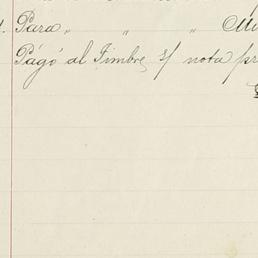 Para " " "
Págó al Timbre s/ nota